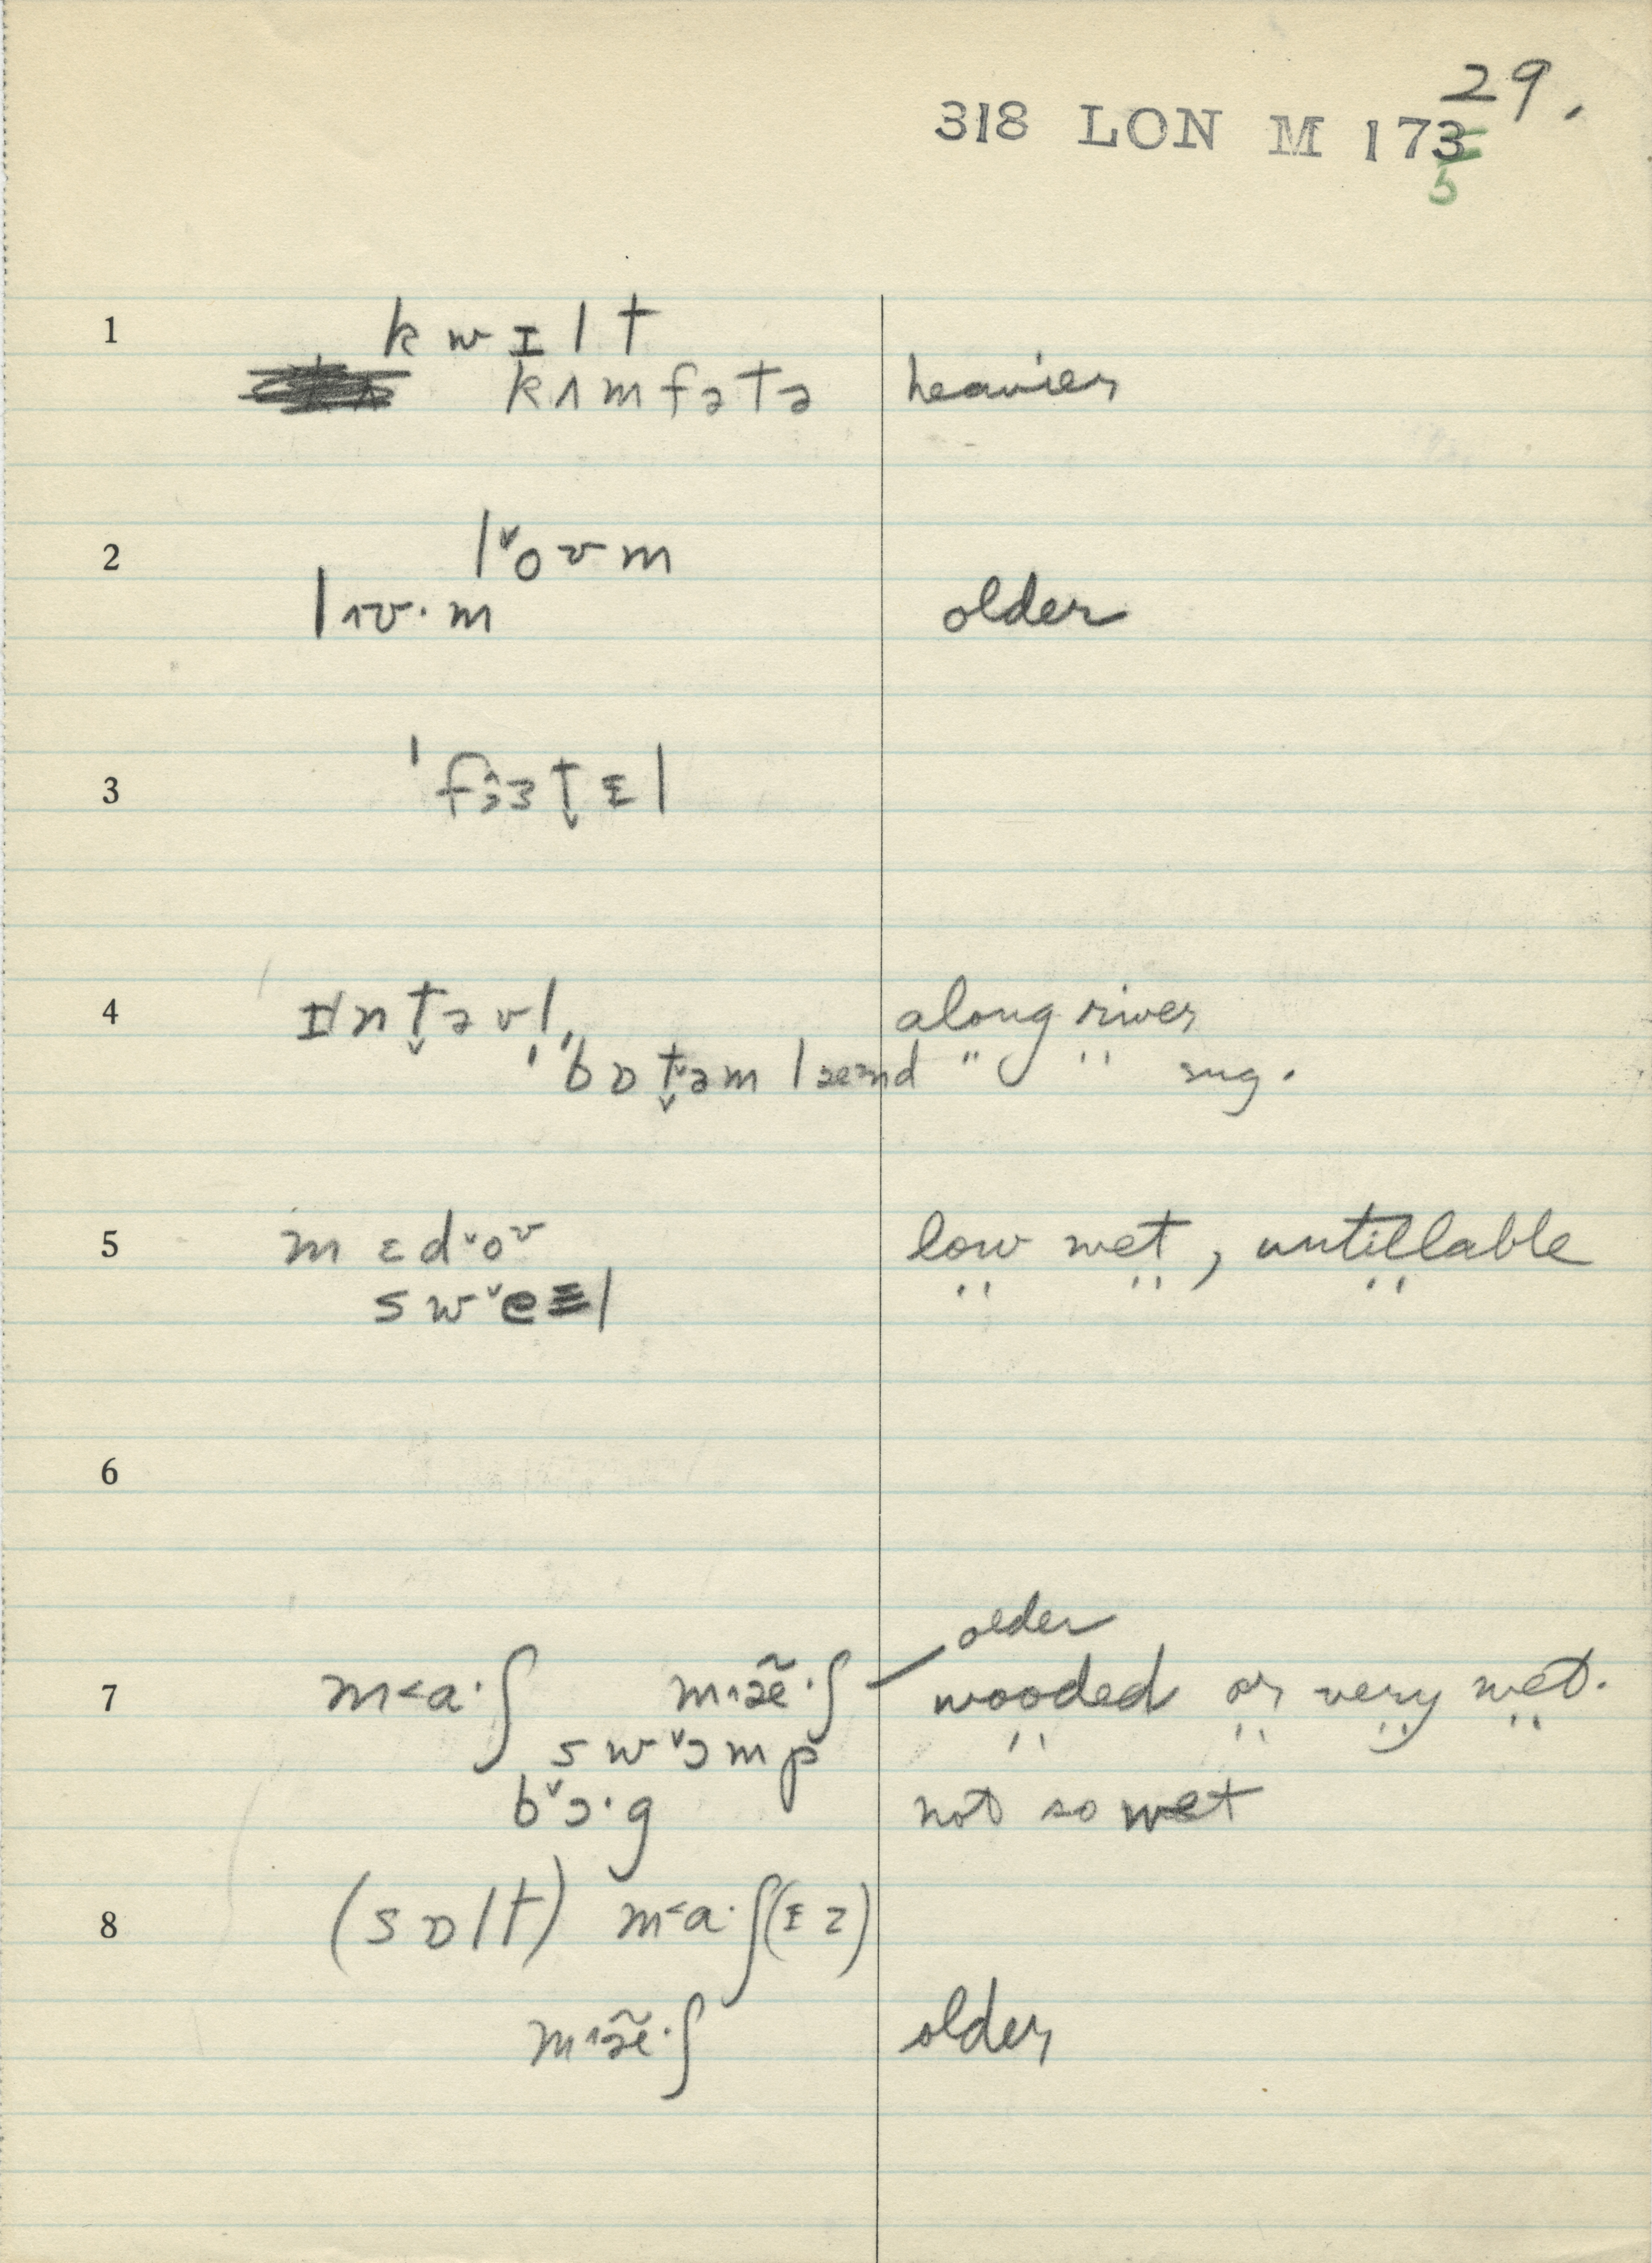 29.
318 LON M 173
5
1 kwɪlt
kʌmfətə heavier
2 lˇoʊm
lʌʊ·m older
3 ˈfɜt̬ɪl
4 ɪnt̬əvl̩, along river
ˈbɒt̬əm lænd " " sug.
5 mɛdˇoʊ low wet, untillable
swˇeɪl
6
older
7 m˂a·ʃ m˄æ̃·ʃ — wooded or very wet.
swˇɔmp
bˇɔ·g not so wet
8 (sɒlt) m˂a·ʃ(ɪz)
m˄æ̃·ʃ older